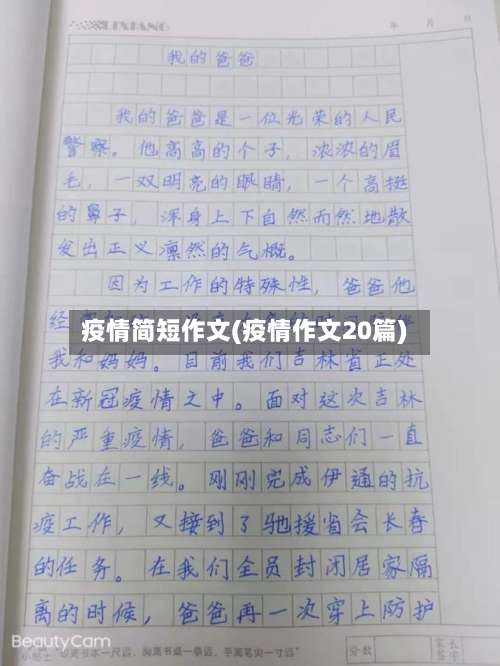 LIXIANG
年 月 日
我的爸爸
我的爸爸是一位光荣的人民
警察。他高高的个子,浓浓的眉
毛,一双明亮的眼睛,一个高挺
的鼻子,浑身上下自然而然地散
发出正义凛然的气概。
因为工作的特殊性,爸爸他
经
疫情简短作文(疫情作文20篇)
我和妈妈。目前我们吉林省正处
在新冠疫情之中。面对这次吉林
的严重疫情,爸爸和同志们一直
奋战在一线。刚刚完成伊通的抗
疫工作,又接到了驰援省会长春
的任务。在我们全员封闭居家隔
离的时候,爸爸再一次穿上防护
BeautyCam
眼离书本一尺远,胸离书桌一拳远,手离笔尖一寸远"
分数
家长
签字